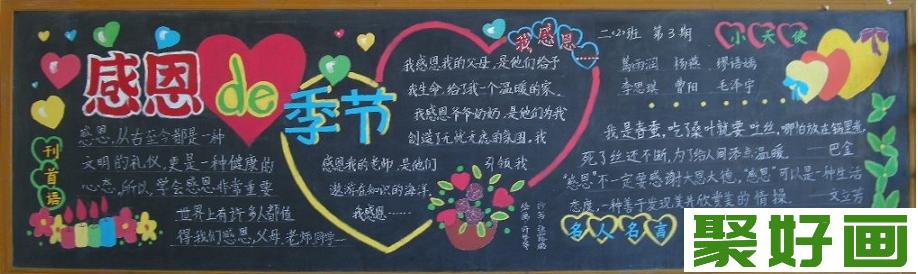 感恩de季节
刊首语
感恩，从古至今都是一种
文明的礼仪，更是一种健康的
心态，所以，学会感恩非常重要
世界上有许多人都值
得我们感恩，父母、老师、同学……
我感恩……
我感恩我的父母，是他们给予
我生命，给了我一个温暖的家。
我感恩爷爷奶奶，是他们为我
创造了无忧无虑的氛围。我
感恩我的老师，是他们 引领我
遨游在知识的海洋。
我感恩……
二〈2〉班 第3期
小天使
葛雨润 杨燕 缪语嫣
李思琪 曹阳 毛泽宇
我是春蚕，吃了桑叶就要吐丝，哪怕放在锅里煮，
死了丝还不断，为了给人间添点温暖。 ——巴金
“感恩”不一定要感谢大恩大德，“感恩”可以是一种生活
态度，一种善于发现美并欣赏美的情操。 文立芳
名人名言
聚好画